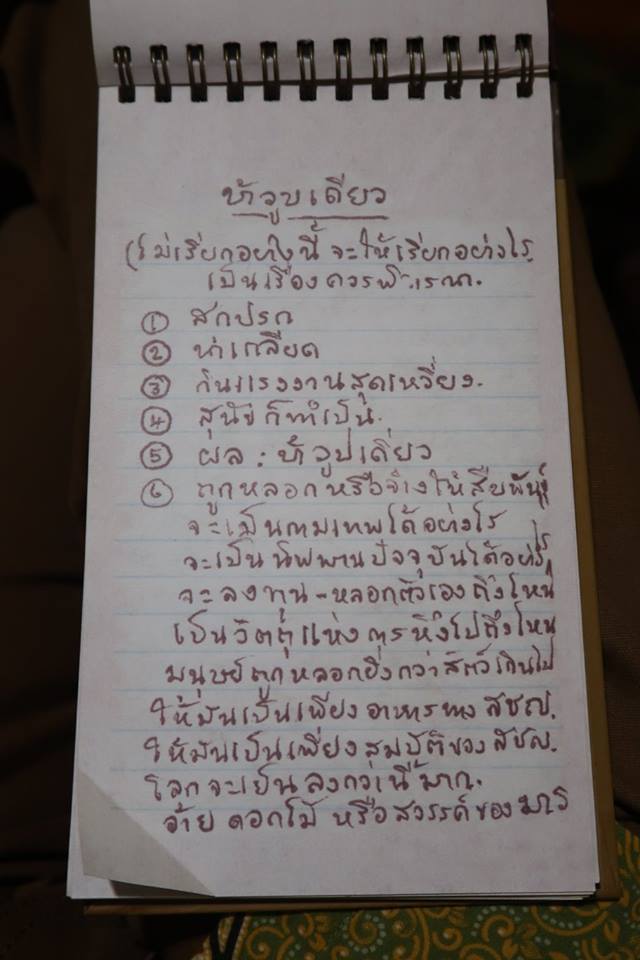 บ้าวูบเดียว
(ไม่เรียกอย่างนี้ จะให้เรียกอย่างไร
เป็นเรื่องควรพิจารณา.
① สกปรก
② น่าเกลียด
③ กินแรงงานสุดเหวี่ยง.
④ สุนัขก็ทำเป็น.
⑤ ผล : บ้าวูบเดียว
⑥ ถูกหลอกหรือจ้างให้สืบพันธุ์
จะเป็นกามเทพได้อย่างไร
จะเป็นนิพพานปัจจุบันได้อย่างไร
จะลงทุน - หลอกตัวเองถึงไหน
เป็นวัตถุแห่งการหึงไปถึงไหน
มนุษย์ถูกหลอกยิ่งกว่าสัตว์เกินไป
ให้มันเป็นเพียง อาหารทาง สัชญ.
ให้มันเป็นเพียง สมบัติของ สัชญ.
โลกจะเย็นลงกว่านี้มาก.
ดอกไม้ หรือ สวรรค์ของมาร